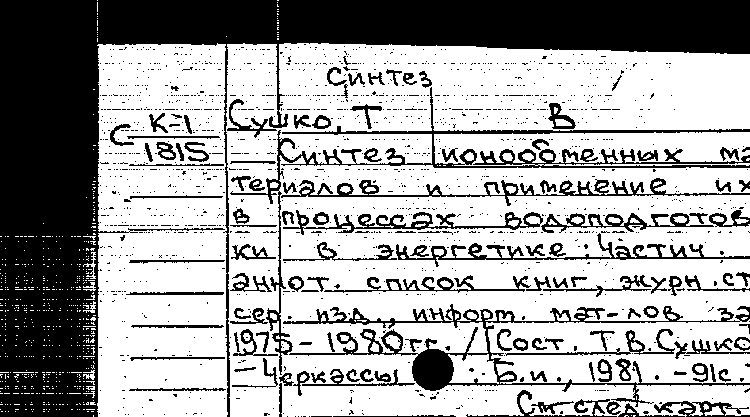 Синтез
С К-1 Сушко, Т В
1815 Синтез ионообменных ма
териалов и применение их
в процессах водоподготов
ки в энергетике : Частич.
аннот. список книг, журн. ст
сер. изд., информ. мат-лов за
1975-1980гг. / [Сост. Т.В.Сушко
-Черкассы : Б.и., 1981. -91с.
См. след. карт